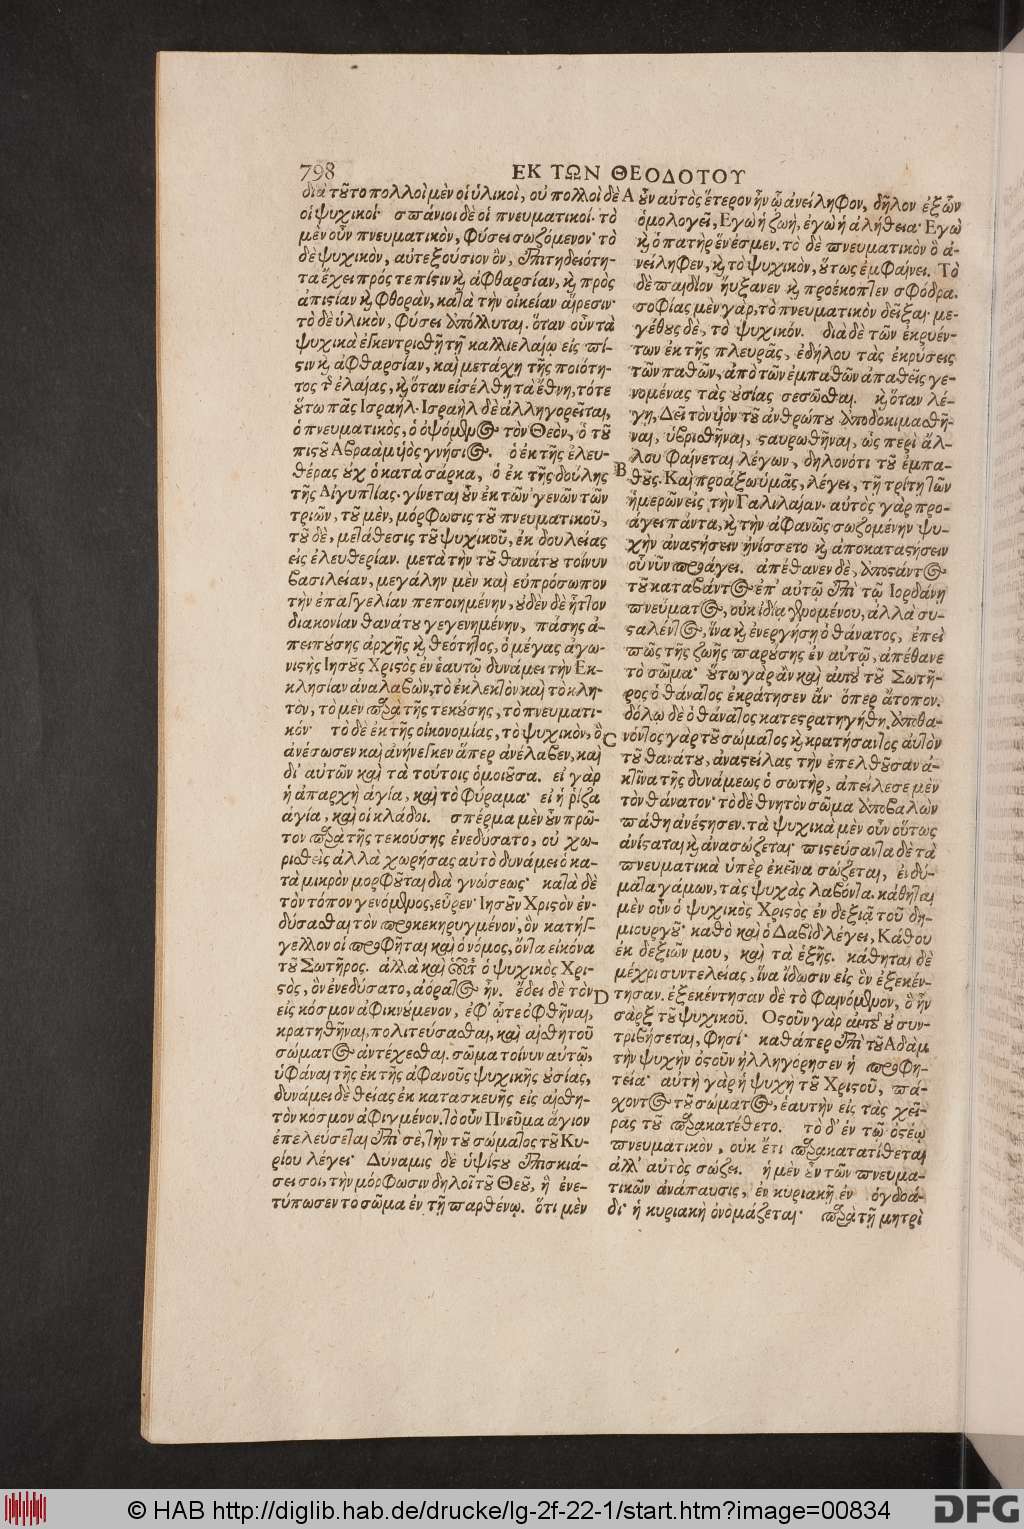 798
ΕΚ ΤΩΝ ΘΕΟΔΟΤΟΥ
διὰ τοῦτο πολλοὶ μὲν οἱ ὑλικοὶ, οὐ πολλοὶ δὲ
οἱ ψυχικοί· σπάνιοι δὲ οἱ πνευματικοί. τὸ
μὲν οὖν πνευματικὸν, φύσει σωζόμενον· τὸ
δὲ ψυχικὸν, αὐτεξούσιον ὂν, ἐπιτηδειότη-
τα ἔχει πρός τε πίστιν καὶ ἀφθαρσίαν, καὶ πρὸς
ἀπιστίαν καὶ φθορὰν, κατὰ τὴν οἰκείαν αἵρεσιν·
τὸ δὲ ὑλικὸν, φύσει ἀπόλλυται. ὅταν οὖν τὰ
ψυχικὰ ἐγκεντρισθῇ τῇ καλλιελαίῳ εἰς πί-
στιν καὶ ἀφθαρσίαν, καὶ μετάχῃ τῆς ποιότη-
τος τῆς ἐλαίας, καὶ ὅταν εἰσέλθῃ τὰ ἔθνη, τότε
οὕτω πᾶς Ισραήλ. Ισραὴλ δὲ ἀλληγορεῖται,
ὁ πνευματικὸς, ὁ ὀψόμενος τὸν Θεὸν, ὁ τοῦ
πιστοῦ Αβραὰμ υἱὸς γνήσιος. ὁ ἐκ τῆς ἐλευ-
θέρας οὐχ ὁ κατὰ σάρκα, ὁ ἐκ τῆς δούλης
τῆς Αἰγυπτίας. γίνεται οὖν ἐκ τῶν γενῶν τῶν
τριῶν, τοῦ μὲν, μόρφωσις τοῦ πνευματικοῦ,
τοῦ δὲ, μετάθεσις τοῦ ψυχικοῦ, ἐκ δουλείας
εἰς ἐλευθερίαν. μετὰ τὴν τοῦ θανάτου τοίνυν
βασιλείαν, μεγάλην μὲν καὶ εὐπρόσωπον
τὴν ἐπαγγελίαν πεποιημένην, οὐδὲν δὲ ἧττον
διακονίαν θανάτου γεγενημένην, πάσης ἀ-
πειπούσης ἀρχῆς καὶ θεότητος, ὁ μέγας ἀγω-
νιστὴς Ιησοῦς Χριστὸς ἐν ἑαυτῷ δυνάμει τὴν Εκ-
κλησίαν ἀναλαβὼν, τὸ ἐκλεκτὸν καὶ τὸ κλη-
τὸν, τὸ μὲν παρὰ τῆς τεκούσης, τὸ πνευματι-
κόν· τὸ δὲ ἐκ τῆς οἰκονομίας, τὸ ψυχικὸν, ὃ
ἀνέσωσεν καὶ ἀνήνεγκεν ἅπερ ἀνέλαβεν, καὶ
δι' αὐτῶν καὶ τὰ τούτοις ὁμοιοῦσα. εἰ γὰρ
ἡ ἀπαρχὴ ἁγία, καὶ τὸ φύραμα· εἰ ἡ ῥίζα
ἁγία, καὶ οἱ κλάδοι. σπέρμα μὲν οὖν πρῶ-
τον παρὰ τῆς τεκούσης ἐνεδύσατο, οὐ χω-
ρισθεὶς ἀλλὰ χωρήσας αὐτὸ δυνάμει ὁ κα-
τὰ μικρὸν μορφοῦται διὰ γνώσεως· κατὰ δὲ
τὸν τόπον γενόμενος, εὗρεν Ιησοῦν Χριστὸν ἐν-
δύσασθαι τὸν προκεκηρυγμένον, ὃν κατήγ-
γελλον οἱ προφῆται καὶ ὁ νόμος, ὄντα εἰκόνα
τοῦ Σωτῆρος. ἀλλὰ καὶ οὗτος ὁ ψυχικὸς Χρι-
στὸς, ὃν ἐνεδύσατο, ἀόρατος ἦν. ἔδει δὲ τὸν
εἰς κόσμον ἀφικνούμενον, ἐφ' ᾧ τε ὀφθῆναι,
κρατηθῆναι, πολιτεύσασθαι, καὶ αἰσθητοῦ
σώματος ἀντέχεσθαι. σῶμα τοίνυν αὐτῷ,
ὑφάναι τῆς ἐκ τῆς ἀφανοῦς ψυχικῆς οὐσίας,
δυνάμει δὲ θείας ἐκ κατασκευῆς εἰς αἰσθη-
τὸν κόσμον ἀφιγμένον. τὸ οὖν Πνεῦμα ἅγιον
ἐπελεύσεται ἐπὶ σὲ, τὴν τοῦ σώματος τοῦ Κυ-
ρίου λέγει· Δυναμις δὲ ὑψίστου ἐπισκιά-
σει σοι, τὴν μόρφωσιν δηλοῖ τοῦ Θεοῦ, ἣ ἐνε-
τύπωσεν τὸ σῶμα ἐν τῇ παρθένῳ. ὅτι μὲν
A οὖν αὐτὸς ἕτερον ἦν ᾧ ἀνείληφον, δῆλον ἐξ ὧν
ὁμολογεῖ, Εγὼ ἡ ζωὴ, ἐγὼ ἡ ἀλήθεια· Εγὼ
καὶ ὁ πατὴρ ἕν ἐσμεν. τὸ δὲ πνευματικὸν ὃ ἀ-
νείληφεν, καὶ τὸ ψυχικὸν, οὕτως ἐμφαίνει. Τὸ
δὲ παιδίον ηὔξανεν καὶ προέκοπτεν σφόδρα.
σοφίας μὲν γὰρ, τὸ πνευματικὸν δεῖξαι· με-
γέθους δὲ, τὸ ψυχικόν. διὰ δὲ τῶν ἐκρυέν-
των ἐκ τῆς πλευρᾶς, ἐδήλου τὰς ἐκρύσεις
τῶν παθῶν, ἀπὸ τῶν ἐμπαθῶν ἀπαθεῖς γε-
νομένας τὰς οὐσίας σεσῶσθαι. καὶ ὅταν λέ-
γῃ, Δεῖ τὸν υἱὸν τοῦ ἀνθρώπου ἀποδοκιμασθῆ-
ναι, ὑβρισθῆναι, σταυρωθῆναι, ὡς περὶ ἄλ-
λου φαίνεται λέγων, δηλονότι τοῦ ἐμπα-
B θοῦς. Καὶ προάξω ὑμᾶς, λέγει, τῇ τρίτῃ τῶν
ἡμερῶν εἰς τὴν Γαλιλαίαν· αὐτὸς γὰρ προ-
άγει πάντα, καὶ τὴν ἀφανῶς σωζομένην ψυ-
χὴν ἀναστήσειν ᾐνίσσετο καὶ ἀποκαταστήσειν
οὗ νῦν προάγει. ἀπέθανεν δὲ, ἀποστάντος
τοῦ καταβάντος ἐπ' αὐτῷ ἐπὶ τῷ Ιορδάνῃ
πνεύματος, οὐκ ἰδίᾳ γενομένου, ἀλλὰ συ-
σταλέντος, ἵνα καὶ ἐνεργήσῃ ὁ θάνατος, ἐπεὶ
πῶς τῆς ζωῆς παρούσης ἐν αὐτῷ, ἀπέθανε
τὸ σῶμα· οὕτω γὰρ ἂν καὶ αὐτοῦ τοῦ Σωτῆ-
ρος ὁ θάνατος ἐκράτησεν ἄν· ὅπερ ἄτοπον.
δόλῳ δὲ ὁ θάνατος κατεστρατηγήθη. ἀποθα-
C νόντος γὰρ τοῦ σώματος καὶ κρατήσαντος αὐτὸν
τοῦ θανάτου, ἀναστείλας τὴν ἐπελθοῦσαν ἀ-
κτῖνα τῆς δυνάμεως ὁ σωτὴρ, ἀπείλεσε μὲν
τὸν θάνατον· τὸ δὲ θνητὸν σῶμα ἀποβαλὼν
πάθη ἀνέστησεν. τὰ ψυχικὰ μὲν οὖν οὕτως
ἀνίσταται καὶ ἀνασώζεται· πιστεύσαντα δὲ τὰ
πνευματικὰ ὑπὲρ ἐκεῖνα σώζεται, ἐνδύ-
ματα γάμων, τὰς ψυχὰς λαβόντα. κάθηται
μὲν οὖν ὁ ψυχικὸς Χριστὸς ἐν δεξιᾷ τοῦ δη-
μιουργοῦ· καθὸ καὶ ὁ Δαβὶδ λέγει, Κάθου
ἐκ δεξιῶν μου, καὶ τὰ ἑξῆς. κάθηται δὲ
μέχρι συντελείας, ἵνα ἴδωσιν εἰς ὃν ἐξεκέν-
D τησαν. ἐξεκέντησαν δὲ τὸ φαινόμενον, ὃ ἦν
σὰρξ τοῦ ψυχικοῦ. Οστοῦν γὰρ αὐτοῦ οὐ συν-
τριβήσεται, φησί· καθάπερ ἐπὶ τοῦ Αδὰμ
τὴν ψυχὴν ὀστοῦν ἠλληγόρησεν ἡ προφη-
τεία· αὐτὴ γὰρ ἡ ψυχὴ τοῦ Χριστοῦ, πά-
χοντος τοῦ σώματος, ἑαυτὴν εἰς τὰς χεῖ-
ρας τοῦ παρακατέθετο. τὸ δ' ἐν τῷ ὀστέῳ
πνευματικὸν, οὐκ ἔτι παρακατατίθεται
ἀλλ' αὐτὸς σώζει. ἡ μὲν οὖν τῶν πνευμα-
τικῶν ἀνάπαυσις, ἐν κυριακῇ ἐν ὀγδοά-
δι· ἡ κυριακὴ ὀνομάζεται· παρὰ τῇ μητρὶ
© HAB http://diglib.hab.de/drucke/lg-2f-22-1/start.htm?image=00834
DFG